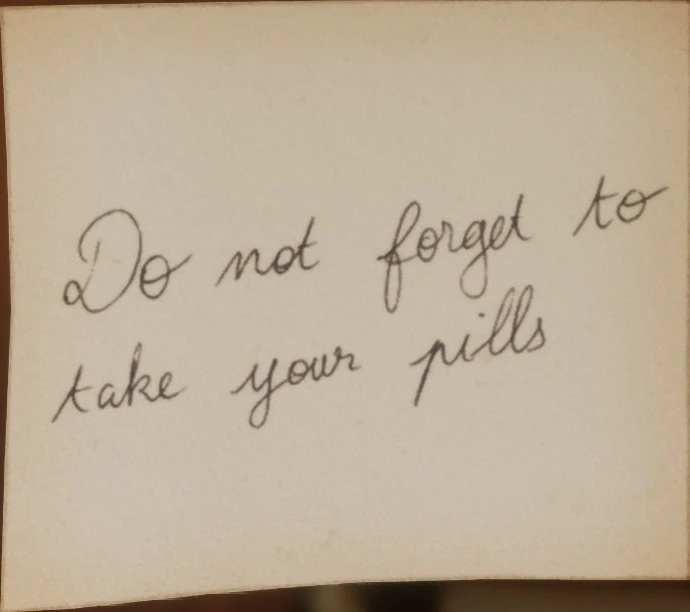 Do not forget to
take your pills